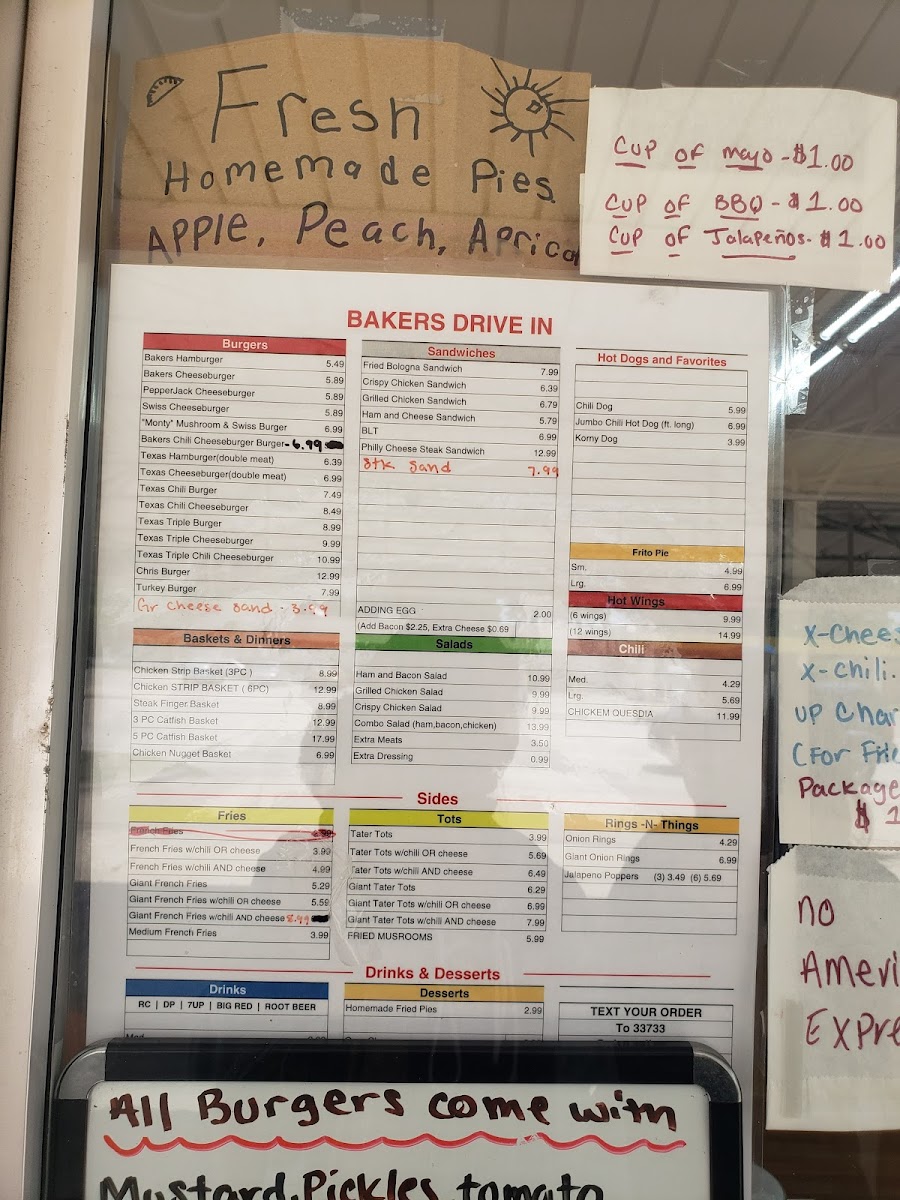 Fresh
Homemade Pies
APPLE, Peach, Aprico
Cup of mayo - $1.00
Cup of BBQ - $1.00
Cup of Jalapeños - $1.00
BAKERS DRIVE IN
Burgers
Bakers Hamburger 5.49
Bakers Cheeseburger 5.89
PepperJack Cheeseburger 5.89
Swiss Cheeseburger 5.89
"Monty" Mushroom & Swiss Burger 6.99
Bakers Chili Cheeseburger Burger - 6.99
Texas Hamburger(double meat) 6.39
Texas Cheeseburger(double meat) 6.99
Texas Chili Burger 7.49
Texas Chili Cheeseburger 8.49
Texas Triple Burger 8.99
Texas Triple Cheeseburger 9.99
Texas Triple Chili Cheeseburger 10.99
Chris Burger 12.99
Turkey Burger 7.99
Gr cheese sand - 3.59
Sandwiches
Fried Bologna Sandwich 7.99
Crispy Chicken Sandwich 6.39
Grilled Chicken Sandwich 6.79
Ham and Cheese Sandwich 5.79
BLT 6.99
Philly Cheese Steak Sandwich 12.99
Stk Sand 7.99
ADDING EGG 2.00
(Add Bacon $2.25, Extra Cheese $0.69
Hot Dogs and Favorites
Chili Dog 5.99
Jumbo Chili Hot Dog (ft. long) 6.99
Korny Dog 3.99
Frito Pie
Sm. 4.99
Lrg. 6.99
Hot Wings
(6 wings) 9.99
(12 wings) 14.99
Chili
Med. 4.29
Lrg. 5.69
CHICKEM QUESDIA 11.99
Baskets & Dinners
Chicken Strip Basket (3PC ) 8.99
Chicken STRIP BASKET ( 6PC) 12.99
Steak Finger Basket 8.99
3 PC Catfish Basket 12.99
5 PC Catfish Basket 17.99
Chicken Nugget Basket 6.99
Salads
Ham and Bacon Salad 10.99
Grilled Chicken Salad 9.99
Crispy Chicken Salad 9.99
Combo Salad (ham,bacon,chicken) 13.99
Extra Meats 3.50
Extra Dressing 0.99
Sides
Fries
French Fries
French Fries w/chili OR cheese 3.99
French Fries w/chili AND cheese 4.99
Giant French Fries 5.29
Giant French Fries w/chili OR cheese 5.59
Giant French Fries w/chili AND cheese 8.99
Medium French Fries 3.99
Tots
Tater Tots 3.99
Tater Tots w/chili OR cheese 5.69
Tater Tots w/chili AND cheese 6.49
Giant Tater Tots 6.29
Giant Tater Tots w/chili OR cheese 6.99
Giant Tater Tots w/chili AND cheese 7.99
FRIED MUSROOMS 5.99
Rings -N- Things
Onion Rings 4.29
Giant Onion Rings 6.99
Jalapeno Poppers (3) 3.49 (6) 5.69
Drinks & Desserts
Drinks
RC | DP | 7UP | BIG RED | ROOT BEER
Desserts
Homemade Fried Pies 2.99
TEXT YOUR ORDER
To 33733
X-Chees
X-chili.
up Char
(For Frie
Package
$ 1
no
Ameri
Expre
All Burgers come with
Mustard, Pickles, tomato